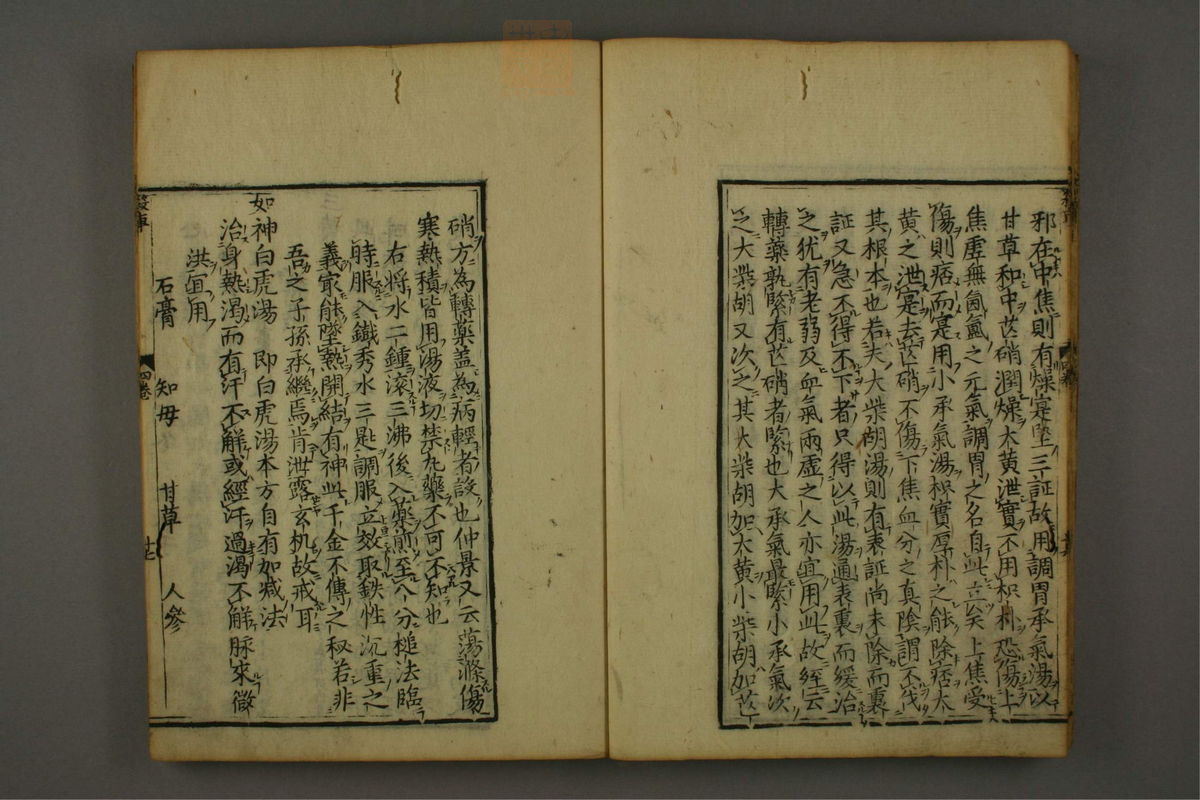 邪在中焦則有燥寔堅三証故用調胃承氣湯以
甘草和中芒硝潤燥大黃泄實不用枳朴恐傷上
焦虛無氤氳之元氣調胃之名自此立矣上焦受
傷則痞而寔用小承氣湯枳實厚朴之能除痞大
黃之泄寔去芒硝不傷下焦血分之真陰謂不伐
其根本也若夫大柴胡湯則有表証尚未除而裏
証又急不得不下者只得以此湯通表裏而緩治
之犹有老弱及血氣兩虛之人亦宜用此故經云
轉藥孰緊有芒硝者緊也大承氣最緊小承氣次
之大柴胡又次之其大柴胡加大黃小柴胡加芒
硝方為轉藥盖為病輕者設也仲景又云蕩滌傷
寒熱積皆用湯液切禁丸藥不可不知也
右將水二鍾滾三沸後入藥煎至八分槌法臨
時服入鐵秀水三匙調服立效取鉄性沉重之
義寂能墜熱開結有神此千金不傳之秘若非
吾之子孫承繼焉肯泄露玄机故戒耳
如神白虎湯 即白虎湯本方自有加減法
治身熱渴而有汗不觧或經汗過渴不觧脉來微
洪宜用
石膏 知母 甘草 人參
四卷 十七